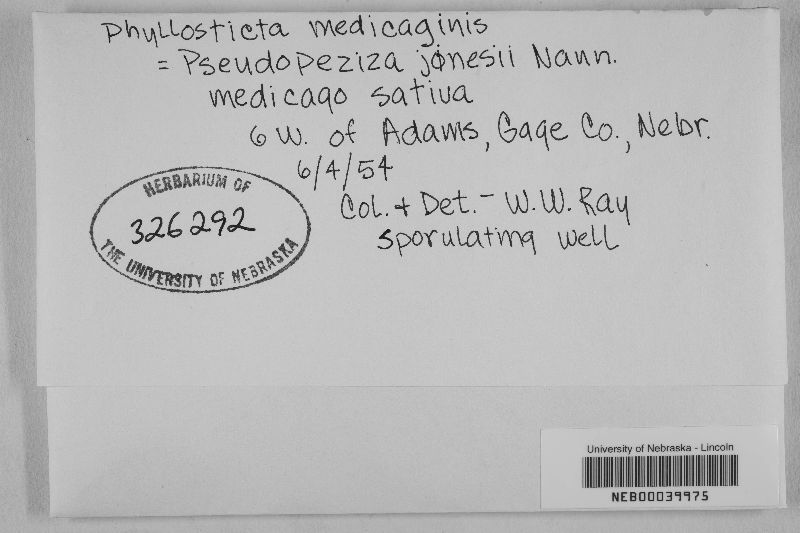 Phyllosticta medicaginis
= Pseudopeziza jonesii Nann.
medicago sativa
6 W. of Adams, Gage Co., Nebr.
6/4/54
Col. + Det. - W.W. Ray
sporulating well
HERBARIUM OF
326292
THE UNIVERSITY OF NEBRASKA
University of Nebraska - Lincoln
NEB00039975